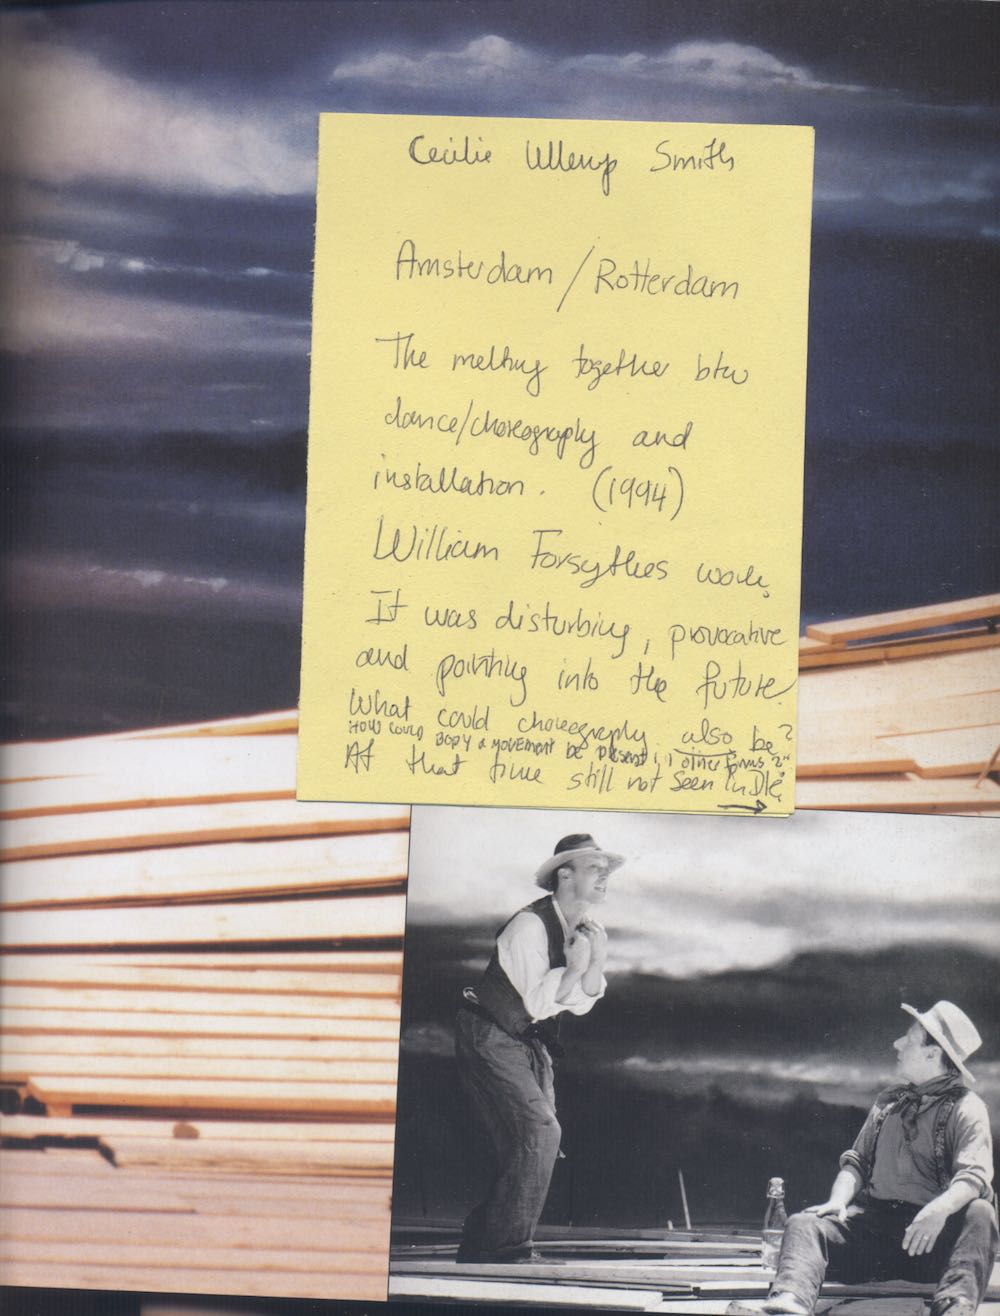 Cecilie Ullerup Smith
Amsterdam / Rotterdam
The melting together btw
dance/choreography and
installation. (1994)
William Forsythes work,
It was disturbing, provocative
and pointing into the future.
What could choreography also be?
HOW COULD BODY & MOVEMENT BE PRESENT in other forms?"
At that time still not seen in DK.
→